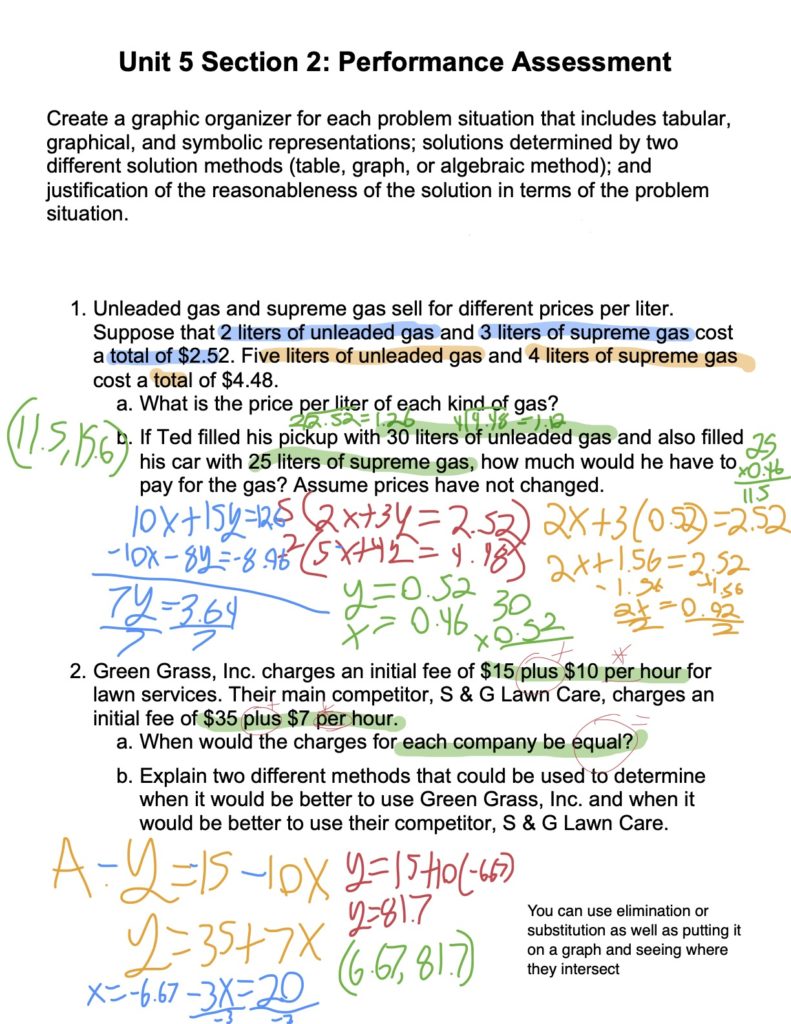 Unit 5 Section 2: Performance Assessment
Create a graphic organizer for each problem situation that includes tabular,
graphical, and symbolic representations; solutions determined by two
different solution methods (table, graph, or algebraic method); and
justification of the reasonableness of the solution in terms of the problem
situation.
1. Unleaded gas and supreme gas sell for different prices per liter.
Suppose that 2 liters of unleaded gas and 3 liters of supreme gas cost
a total of $2.52. Five liters of unleaded gas and 4 liters of supreme gas
cost a total of $4.48.
a. What is the price per liter of each kind of gas?
(11.5, 15.6)
b. If Ted filled his pickup with 30 liters of unleaded gas and also filled
his car with 25 liters of supreme gas, how much would he have to
pay for the gas? Assume prices have not changed.
25
x0.46
115
10x+15y=12.6
5(2x+3y=2.52)
2x+3(0.52)=2.52
-10x-8y=-8.96
2x+1.56=2.52
-1.56 -1.56
7y=3.64
7 7
y=0.52
x=0.46
30
x0.52
2x=0.92
2 2
2. Green Grass, Inc. charges an initial fee of $15 plus $10 per hour for
lawn services. Their main competitor, S & G Lawn Care, charges an
initial fee of $35 plus $7 per hour.
a. When would the charges for each company be equal?
b. Explain two different methods that could be used to determine
when it would be better to use Green Grass, Inc. and when it
would be better to use their competitor, S & G Lawn Care.
A-y=15-10x
y=15+10(-6.67)
y=81.7
y=35+7x
(6.67, 81.7)
x=-6.67
-3x=20
-3 -3
You can use elimination or
substitution as well as putting it
on a graph and seeing where
they intersect